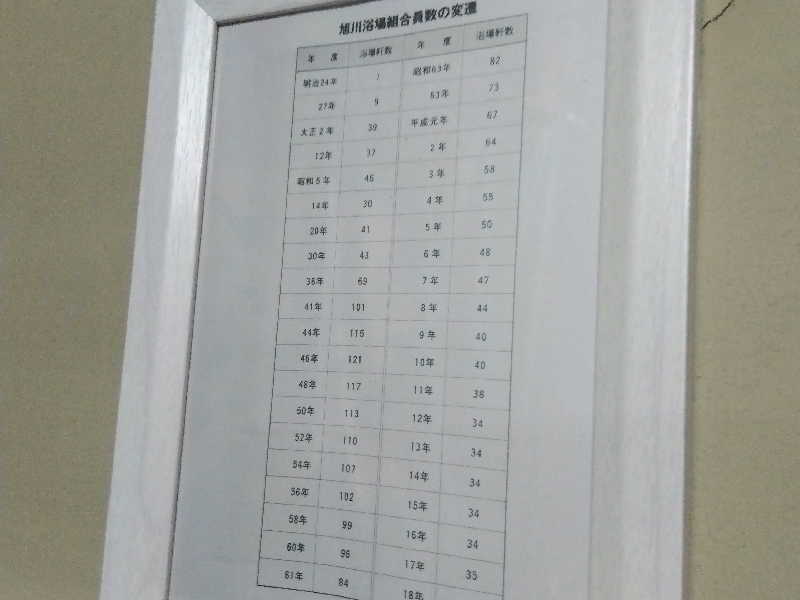 旭川浴場組合員数の変遷
年 度 浴場軒数 年 度 浴場軒数
明治24年 昭和63年 82
27年 9 63年 73
大正2年 39 平成元年 67
12年 37 2年 64
昭和5年 46 3年 58
14年 30 4年 55
20年 41 5年 50
30年 43 6年 48
36年 69 7年 47
41年 101 8年 44
44年 115 9年 40
46年 121 10年 40
48年 117 11年 38
50年 113 12年 34
52年 110 13年 34
54年 107 14年 34
56年 102 15年 34
58年 99 16年 34
60年 96 17年 35
61年 84 18年